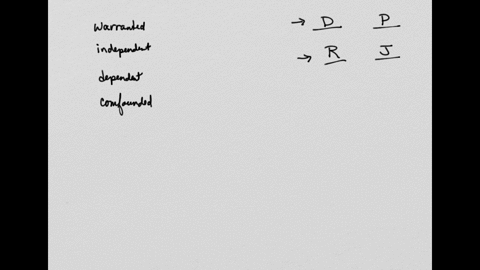 warranted
independent
dependent
compounded
→ D P
→ R J